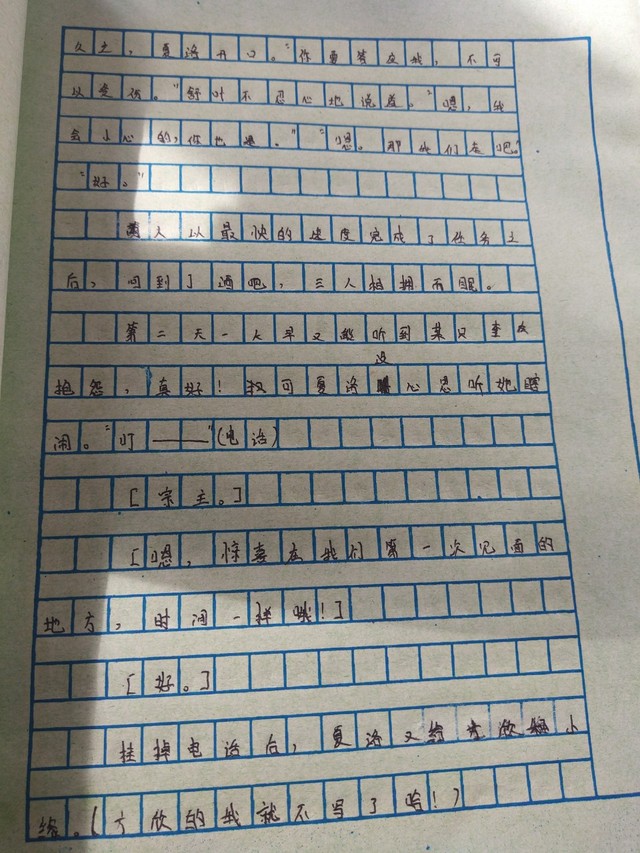 久之，夏洛开口。"你要答应我，不可
以受伤。"舒叶不忍心地说道。"嗯，我
会小心的，你也是。""嗯。那我们走吧。"
"好。"
两人以最快的速度完成了任务之
后，回到了酒吧，三人相拥而眠。
第二天一大早又能听到某只李
抱怨，真好！只可夏洛没心思听她瞎
闹。"叮——"(电话)
[宗主。]
[嗯，惊喜在我们第一次见面的
地方，时间一样哦！]
[好。]
挂掉电话后，夏洛又给方欣小
络。(方欣的我就不写了哈！)